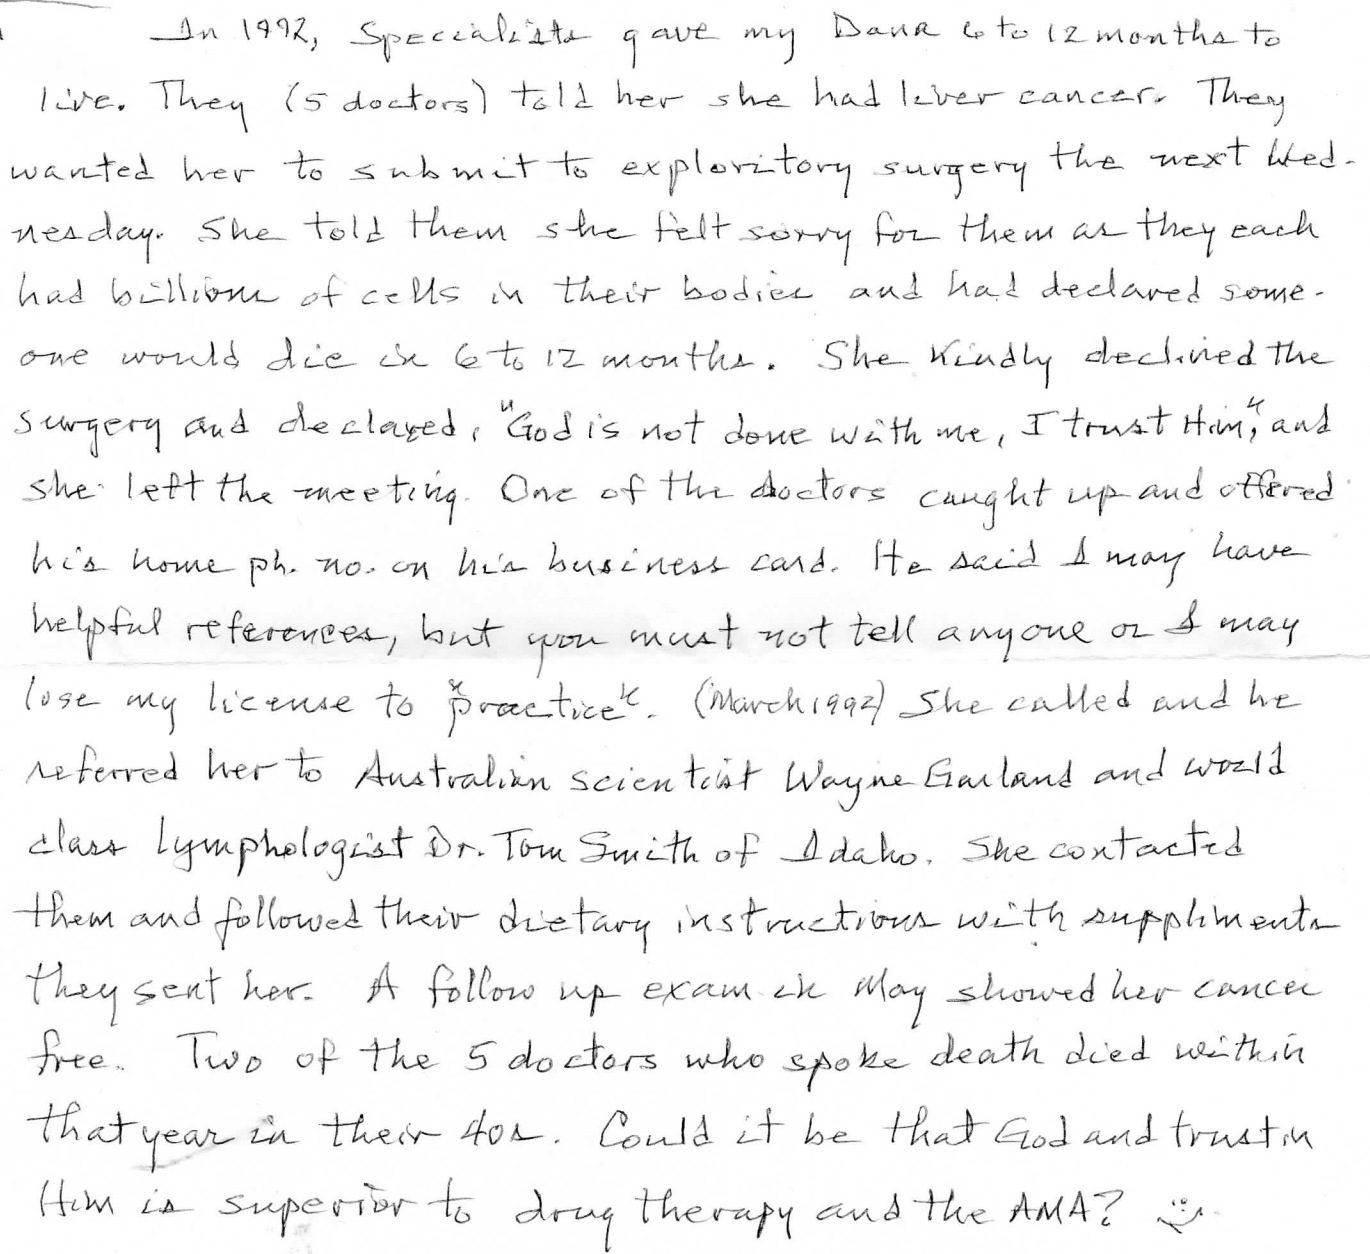 In 1992, Specialists gave my Dana 6 to 12 months to
live. They (5 doctors) told her she had liver cancer. They
wanted her to submit to exploritory surgery the next Wed-
nesday. She told them she felt sorry for them as they each
had billions of cells in their bodies and had declared some-
one would die in 6 to 12 months. She kindly declined the
surgery and declared, "God is not done with me, I trust Him", and
she left the meeting. One of the doctors caught up and offered
his home ph. no. on his business card. He said I may have
helpful references, but you must not tell anyone or I may
lose my license to "practice". (March 1992) She called and he
referred her to Australian scientist Wayne Garland and world
class lymphologist Dr. Tom Smith of Idaho. She contacted
them and followed their dietary instructions with suppliments
they sent her. A follow up exam in May showed her cancer
free. Two of the 5 doctors who spoke death died within
that year in their 40s. Could it be that God and trust in
Him is superior to drug therapy and the AMA?